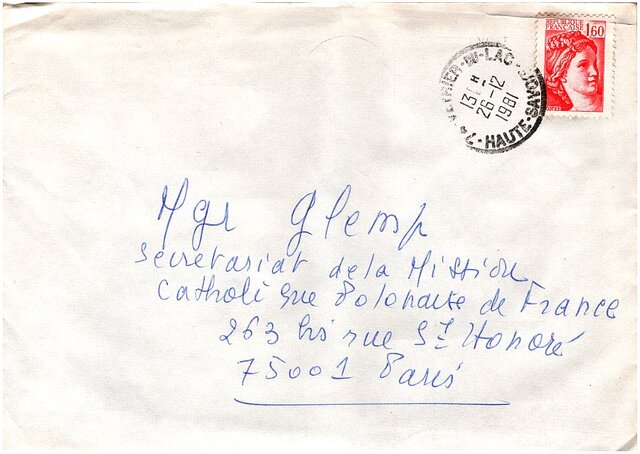 REPUBLIQUE
FRANCAISE 1,60
VEYRIER-DU-LAC
13 H -
26-12
1981
74 HAUTE-SAVOIE
Mgr Glemp
Secretariat de la Mission
Catholique Polonaise de France
263 bis rue St Honoré
75001 Paris